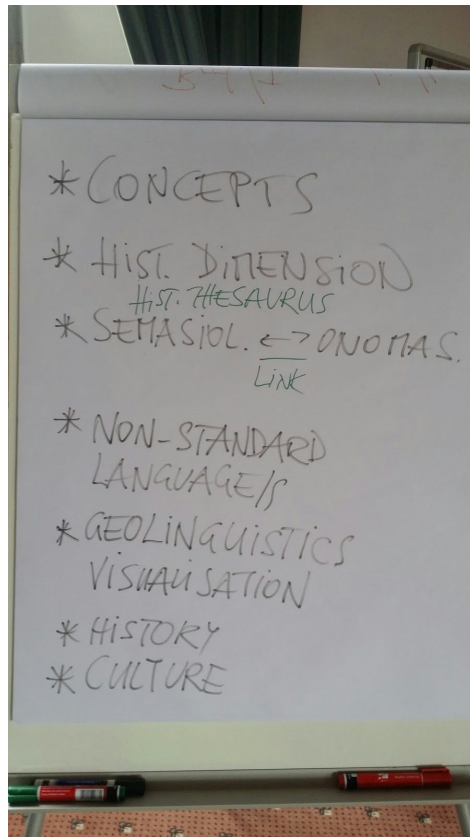 * CONCEPTS
* HIST. DIMENSION
HIST. THESAURUS
* SEMASIOL. <-> ONOMAS.
LINK
* NON-STANDARD
LANGUAGE/S
* GEOLINGUISTICS
VISUALISATION
* HISTORY
* CULTURE